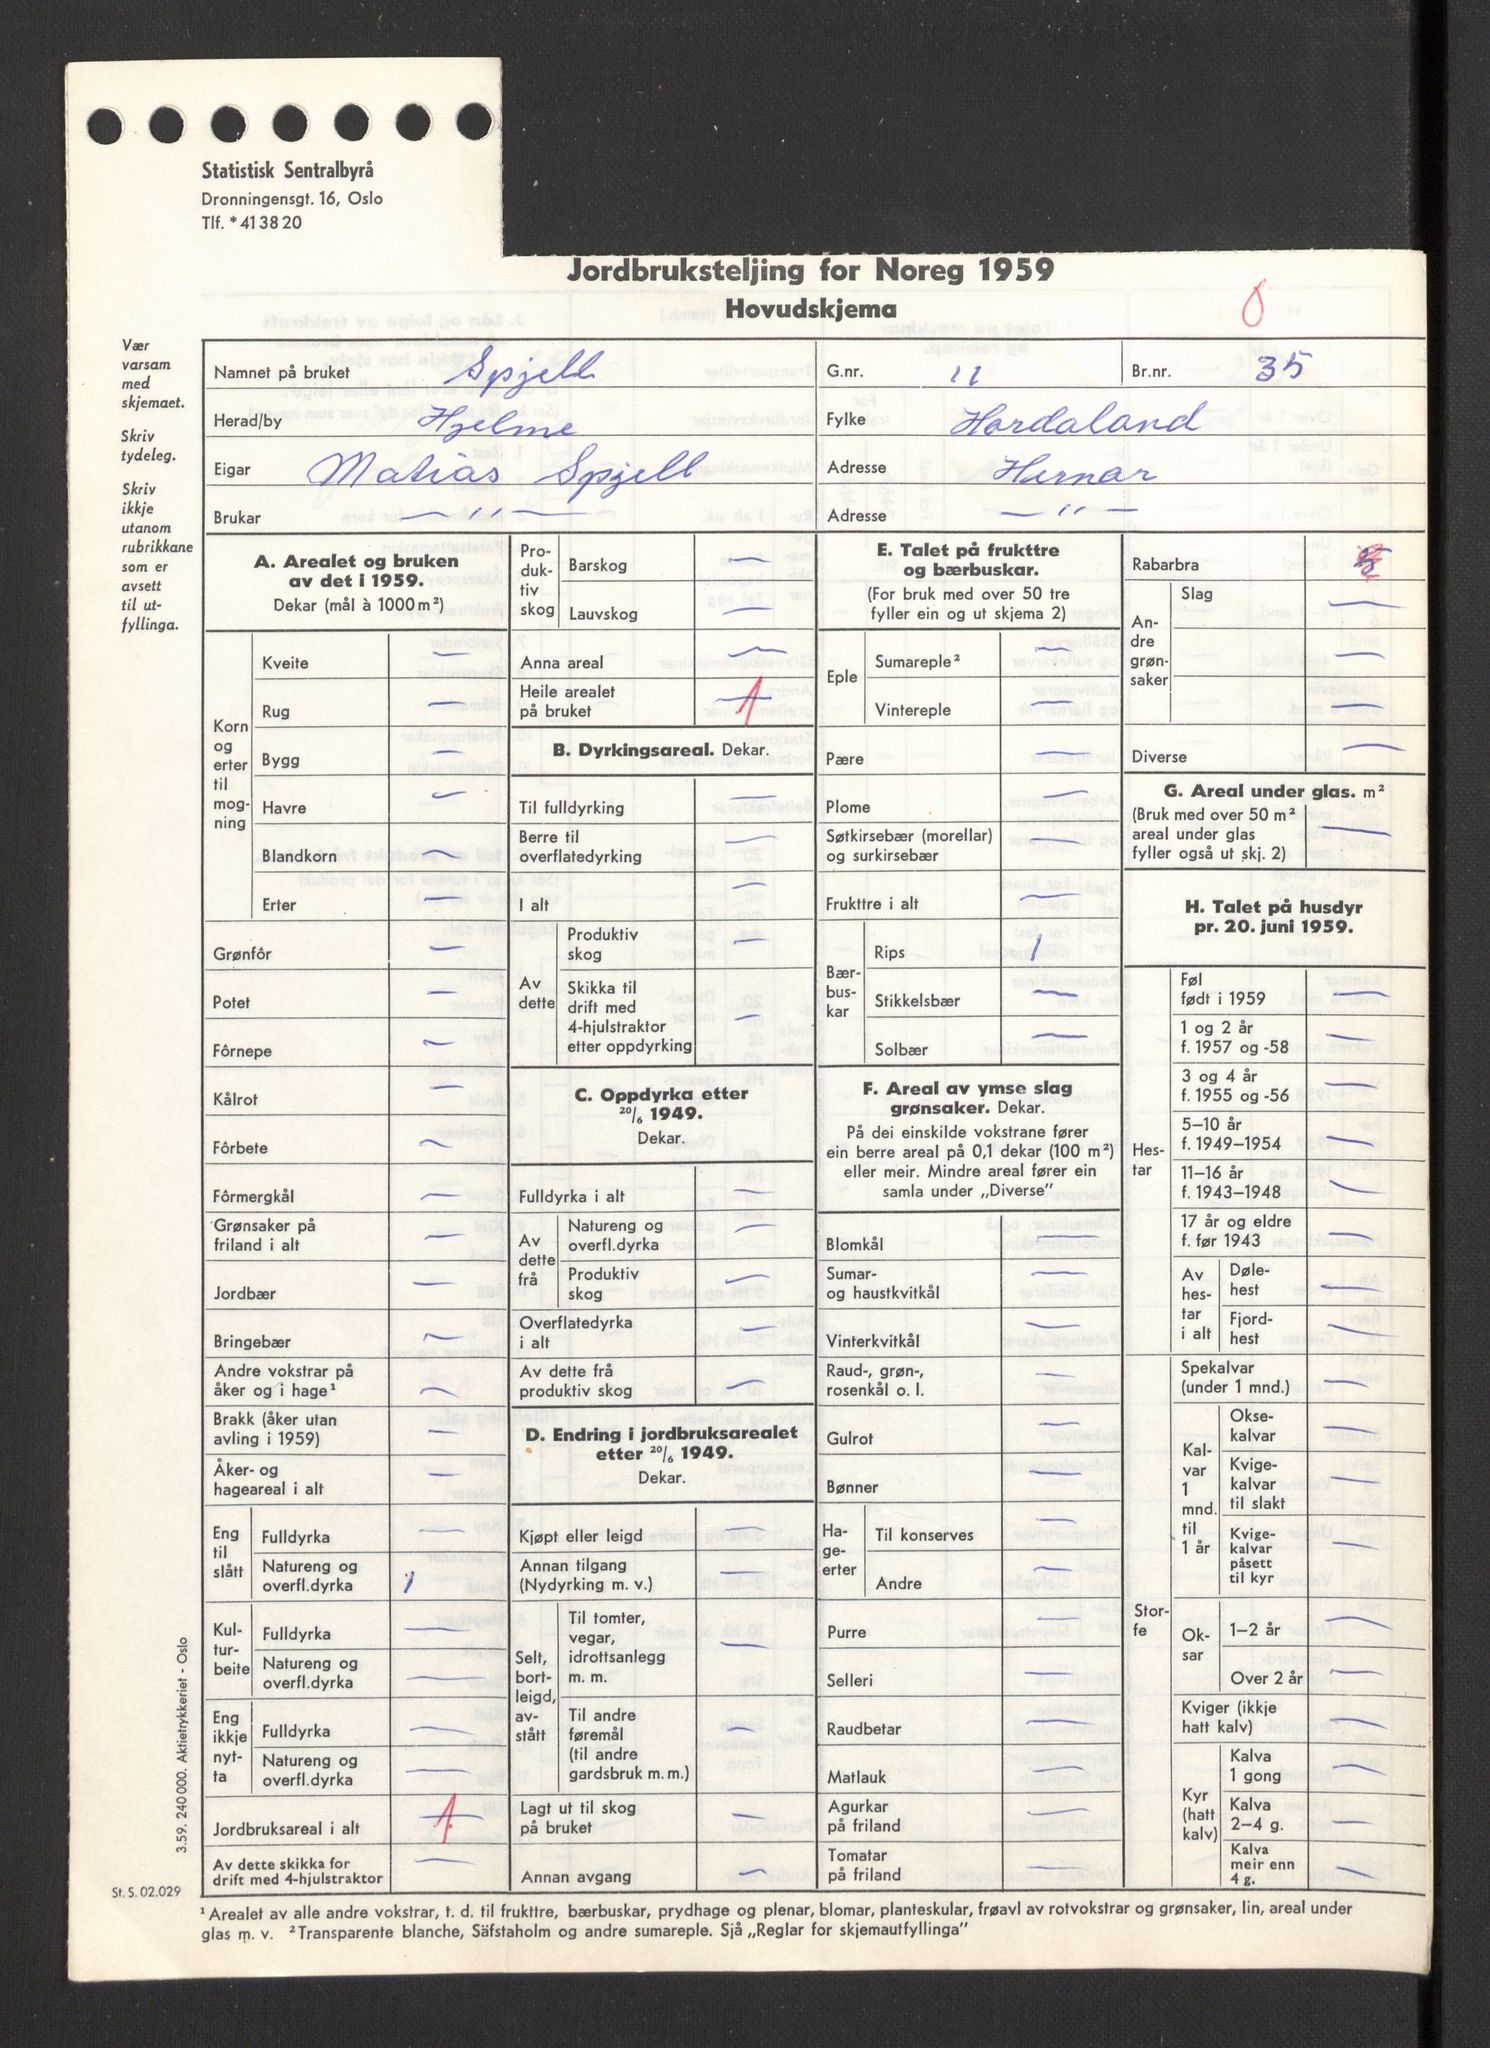 Statistisk Sentralbyrå
Dronningensgt. 16, Oslo
Tlf. *41 38 20
Jordbruksteljing for Noreg 1959
Hovudskjema
0
Vær
varsam
med
skjemaet.
Skriv
tydeleg.
Skriv
ikkje
utanom
rubrikkane
som er
avsett
til ut-
fyllinga.
Namnet på bruket Spjell G.nr. 11 Br.nr. 35
Herad/by Hjelme Fylke Hordaland
Eigar Matias Spjell Adresse Hernar
Brukar — " — Adresse — " —
A. Arealet og bruken
av det i 1959.
Dekar (mål à 1000 m²)
Korn
og
erter
til
mog-
ning
Kveite —
Rug —
Bygg —
Havre —
Blandkorn —
Erter —
Grønfôr —
Potet —
Fôrnepe —
Kålrot —
Fôrbete —
Fôrmergkål —
Grønsaker på
friland i alt —
Jordbær —
Bringebær —
Andre vokstrar på
åker og i hage¹ —
Brakk (åker utan
avling i 1959) —
Åker- og
hageareal i alt —
Eng
til
slått
Fulldyrka —
Natureng og
overfl.dyrka 1
Kul-
tur-
beite
Fulldyrka —
Natureng og
overfl.dyrka —
Eng
ikkje
nyt-
ta
Fulldyrka —
Natureng og
overfl.dyrka —
Jordbruksareal i alt 1
Av dette skikka for
drift med 4-hjulstraktor —
Pro-
duk-
tiv
skog
Barskog —
Lauvskog —
Anna areal —
Heile arealet
på bruket 1
B. Dyrkingsareal. Dekar.
Til fulldyrking —
Berre til
overflatedyrking —
I alt —
Av
dette
Produktiv
skog —
Skikka til
drift med
4-hjulstraktor
etter oppdyrking —
C. Oppdyrka etter
20/6 1949.
Dekar.
Fulldyrka i alt —
Av
dette
frå
Natureng og
overfl.dyrka —
Produktiv
skog —
Overflatedyrka
i alt —
Av dette frå
produktiv skog —
D. Endring i jordbruksarealet
etter 20/6 1949.
Dekar.
Kjøpt eller leigd —
Annan tilgang
(Nydyrking m. v.) —
Selt,
bort-
leigd,
av-
stått
Til tomter,
vegar,
idrottsanlegg
m. m. —
Til andre
føremål
(til andre
gardsbruk m. m.) —
Lagt ut til skog
på bruket —
Annan avgang —
E. Talet på frukttre
og bærbuskar.
(For bruk med over 50 tre
fyller ein og ut skjema 2)
Eple
Sumareple² —
Vintereple —
Pære —
Plome —
Søtkirsebær (morellar)
og surkirsebær —
Frukttre i alt —
Bær-
bus-
kar
Rips 1
Stikkelsbær —
Solbær —
F. Areal av ymse slag
grønsaker. Dekar.
På dei einskilde vokstrane fører
ein berre areal på 0,1 dekar (100 m²)
eller meir. Mindre areal fører ein
samla under „Diverse"
Blomkål —
Sumar-
og haustkvitkål —
Vinterkvitkål —
Raud-, grøn-,
rosenkål o. l. —
Gulrot —
Bønner —
Ha-
ge-
erter
Til konserves —
Andre —
Purre —
Selleri —
Raudbetar —
Matlauk —
Agurkar
på friland —
Tomatar
på friland —
Rabarbra
An-
dre
grøn-
saker
Slag —
—
—
Diverse —
G. Areal under glas. m²
(Bruk med over 50 m²
areal under glas
fyller også ut skj. 2) —
H. Talet på husdyr
pr. 20. juni 1959.
Hes-
tar
Føl
født i 1959 —
1 og 2 år
f. 1957 og -58 —
3 og 4 år
f. 1955 og -56 —
5–10 år
f. 1949–1954 —
11–16 år
f. 1943–1948 —
17 år og eldre
f. før 1943 —
Av
hes-
tar
i alt
Døle-
hest —
Fjord-
hest —
Stor-
fe
Spekalvar
(under 1 mnd.) —
Kal-
var
1
mnd.
til
1 år
Okse-
kalvar —
Kvige-
kalvar
til slakt —
Kvige-
kalvar
påsett
til kyr —
Ok-
sar
1–2 år —
Over 2 år —
Kviger (ikkje
hatt kalv) —
Kyr
(hatt
kalv)
Kalva
1 gong —
Kalva
2–4 g. —
Kalva
meir enn
4 g. —
3.59. 240 000. Aktietrykkeriet - Oslo
St. S. 02.029
¹ Arealet av alle andre vokstrar, t. d. til frukttre, bærbuskar, prydhage og plenar, blomar, planteskular, frøavl av rotvokstrar og grønsaker, lin, areal under
glas m. v. ² Transparente blanche, Säfstaholm og andre sumareple. Sjå „Reglar for skjemautfyllinga"